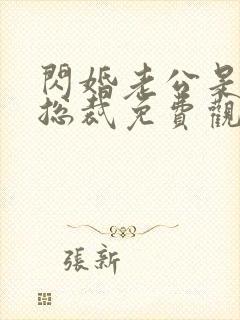 閃婚老公是
總裁免費觀
張新